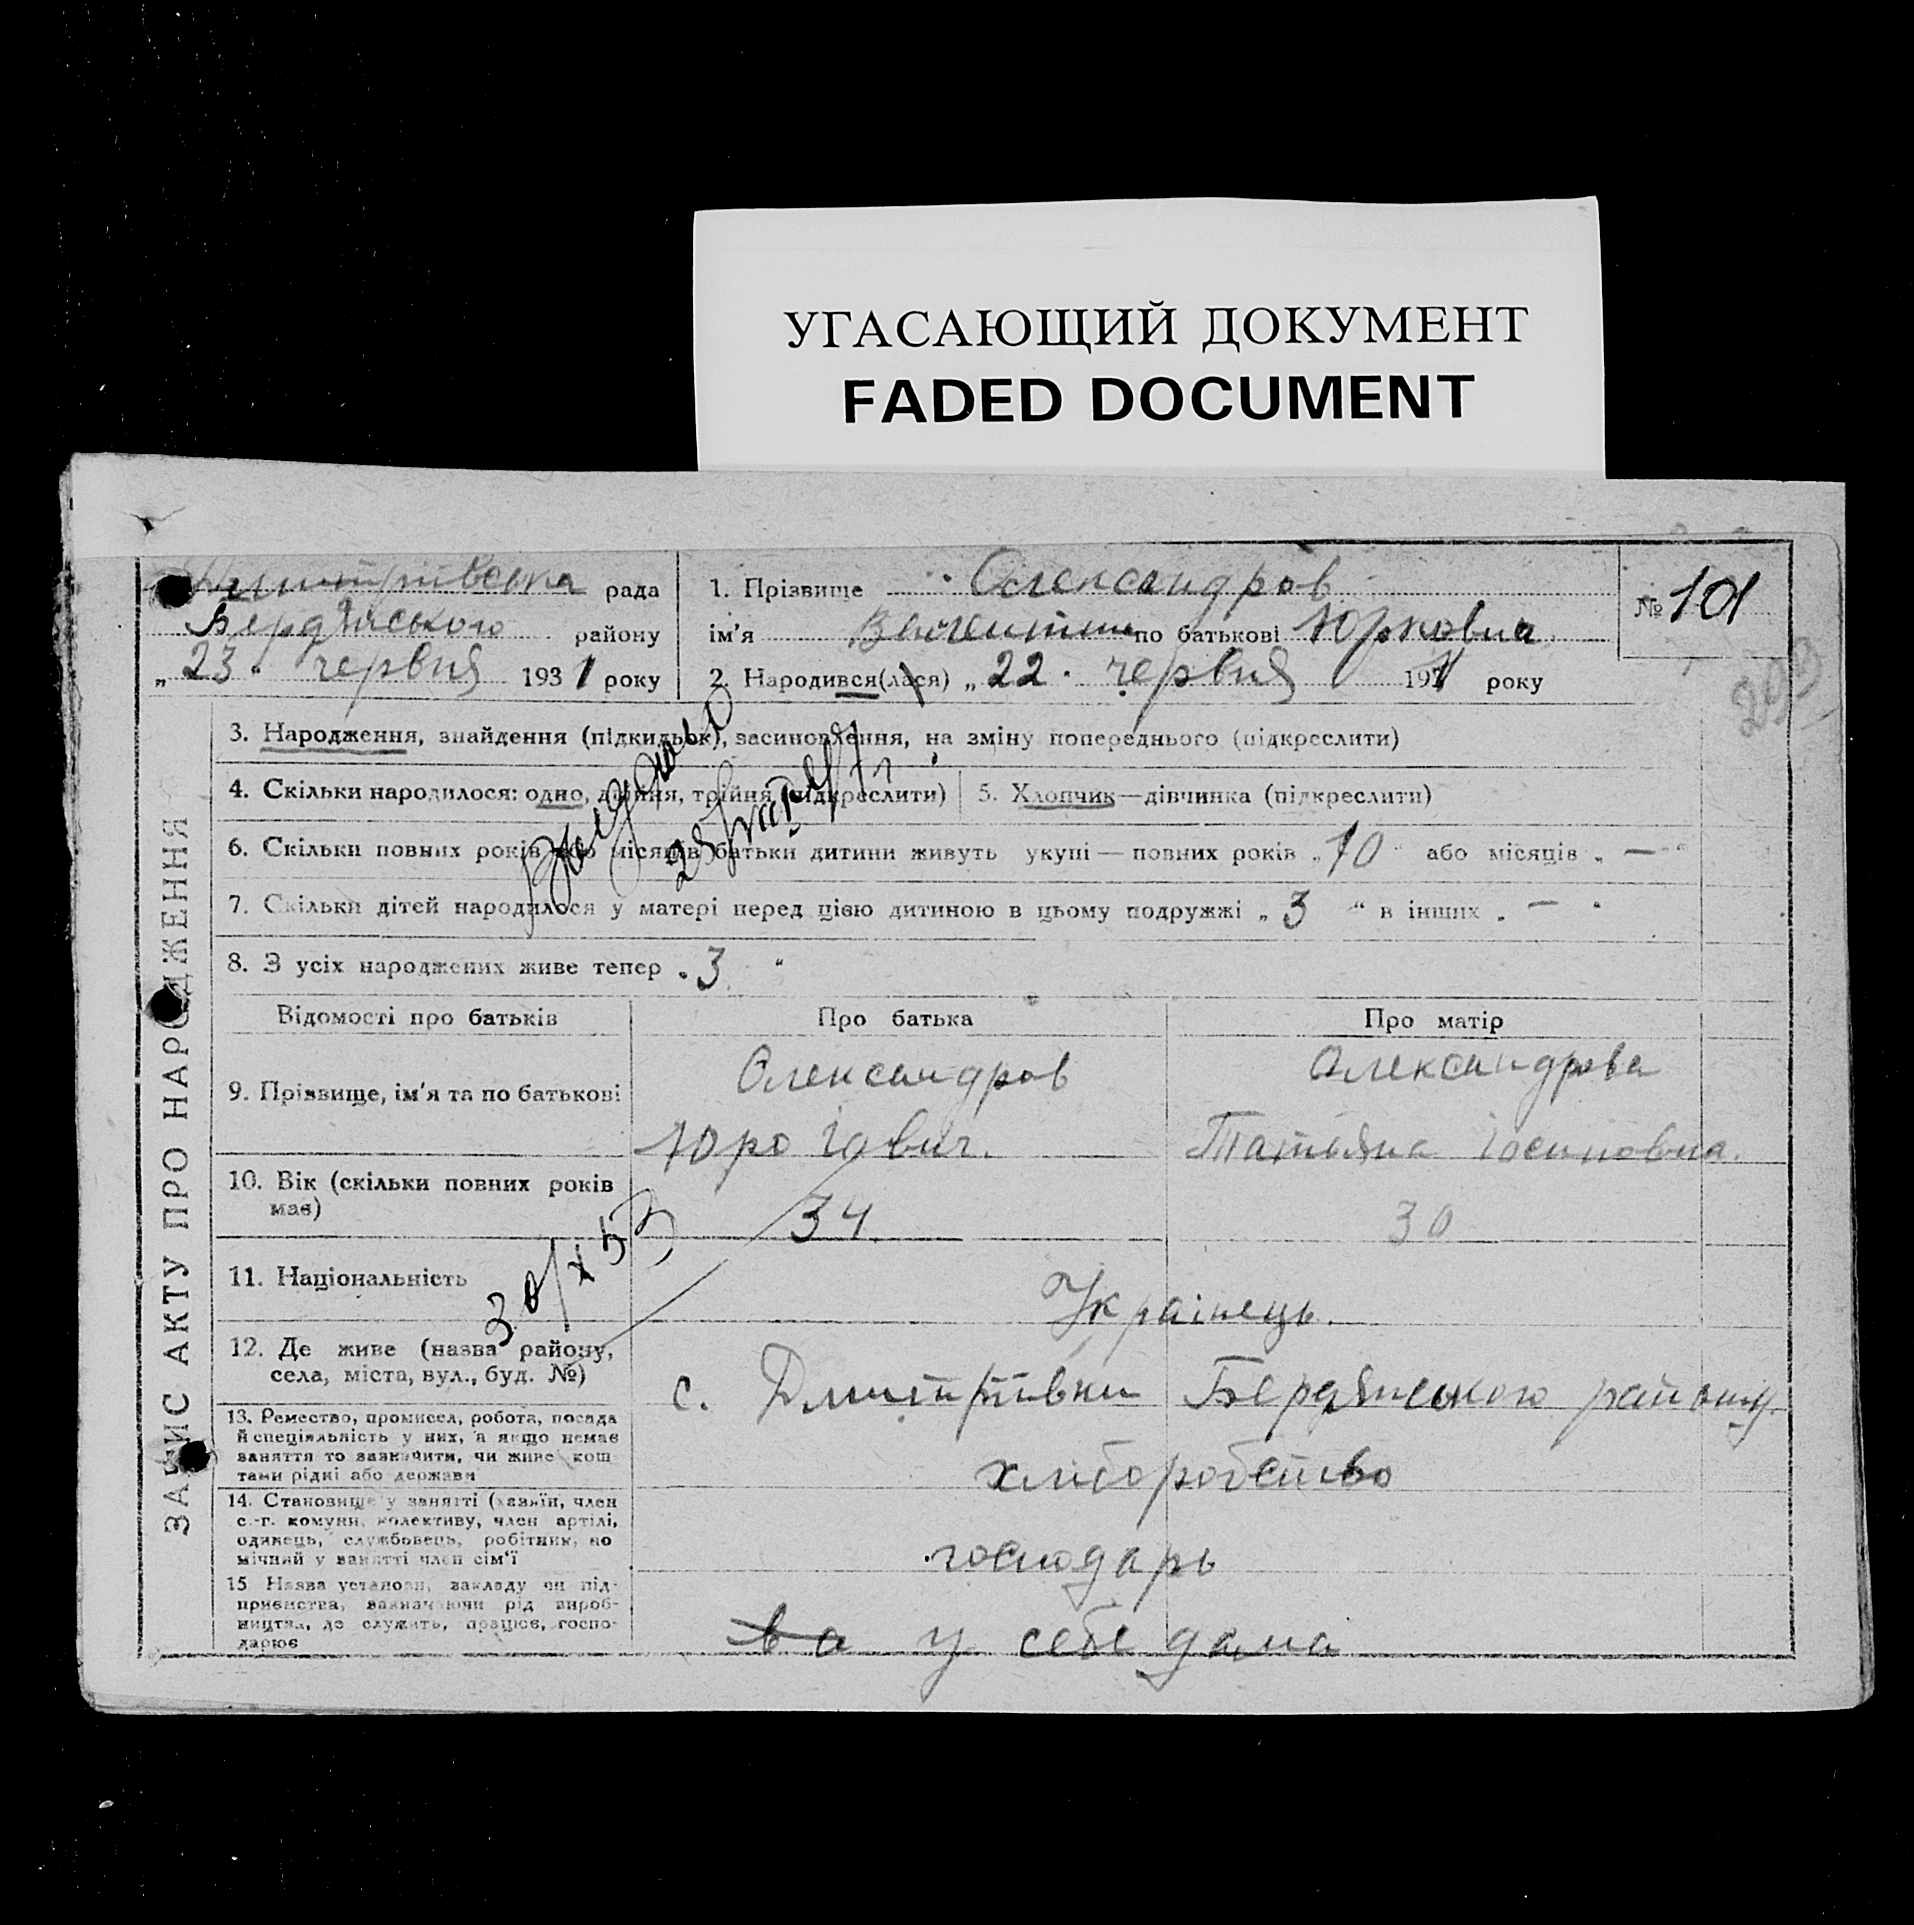 УГАСАЮЩИЙ ДОКУМЕНТ
FADED DOCUMENT
Дмитрівська рада
Бердянського району
„ 23 " червня 1931 року
1. Прізвище Олександров
ім'я Валентин по батькові Юрковна
2. Народився(лася) „ 22 " червня 1931 року
№ 101
203
ЗАПИС АКТУ ПРО НАРОДЖЕННЯ
3. Народження, знайдення (підкидьок), засиновлення, на зміну попереднього (підкреслити)
4. Скільки народилося: одно, двійня, трійня (підкреслити)
5. Хлопчик—дівчинка (підкреслити)
6. Скільки повних років або місяців батьки дитини живуть укупі — повних років „ 10 " або місяців „ — "
7. Скільки дітей народилося у матері перед цією дитиною в цьому подружжі „ 3 " в інших „ — "
8. З усіх народжених живе тепер „ 3 "
Відомості про батьків
Про батька
Про матір
9. Прізвище, ім'я та по батькові
Олександров
Олександрова
Татьяна Іосиповна
10. Вік (скільки повних років має)
34
30
30/X 53
11. Національність
Українець
12. Де живе (назва району, села, міста, вул., буд. №)
с. Дмитрівки Бердянського району
13. Ремество, промисел, робота, посада й спеціяльність у них, а якщо немає заняття то зазначити, чи живе коштами рідні або держави
хліборобство
14. Становище у занятті (хазяїн, член с.-г. комуни, колективу, член артілі, одинець, службовець, робітник, помічний у занятті член сім'ї
господарь
15. Назва установи, закладу чи підприємства, зазначаючи рід виробництва, де служить, працює, господарює
у себе дома